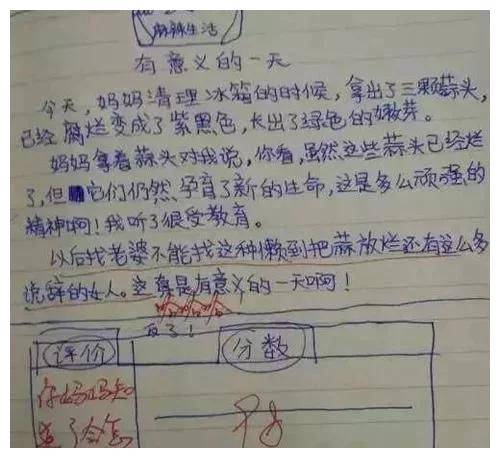 麻辣生活
有意义的一天
今天，妈妈清理冰箱的时候，拿出了三颗蒜头，
已经腐烂变成了紫黑色，长出了绿色的嫩芽。
妈妈拿着蒜头对我说，你看，虽然这些蒜头已经烂
了，但它们仍然孕育了新的生命，这是多么顽强的
精神啊！我听了很受教育。
以后找老婆不能找这种懒到把蒜放烂还有这么多
说辞的女人。这真是有意义的一天啊！
哈哈哈哈
反了！
评价
分数
你妈妈知
道了会怎